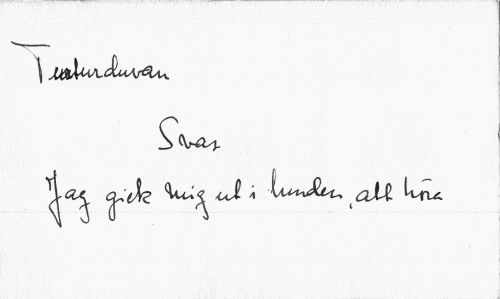 Turturduvan
Svar
Jag gick mig ut i lunden, att höra